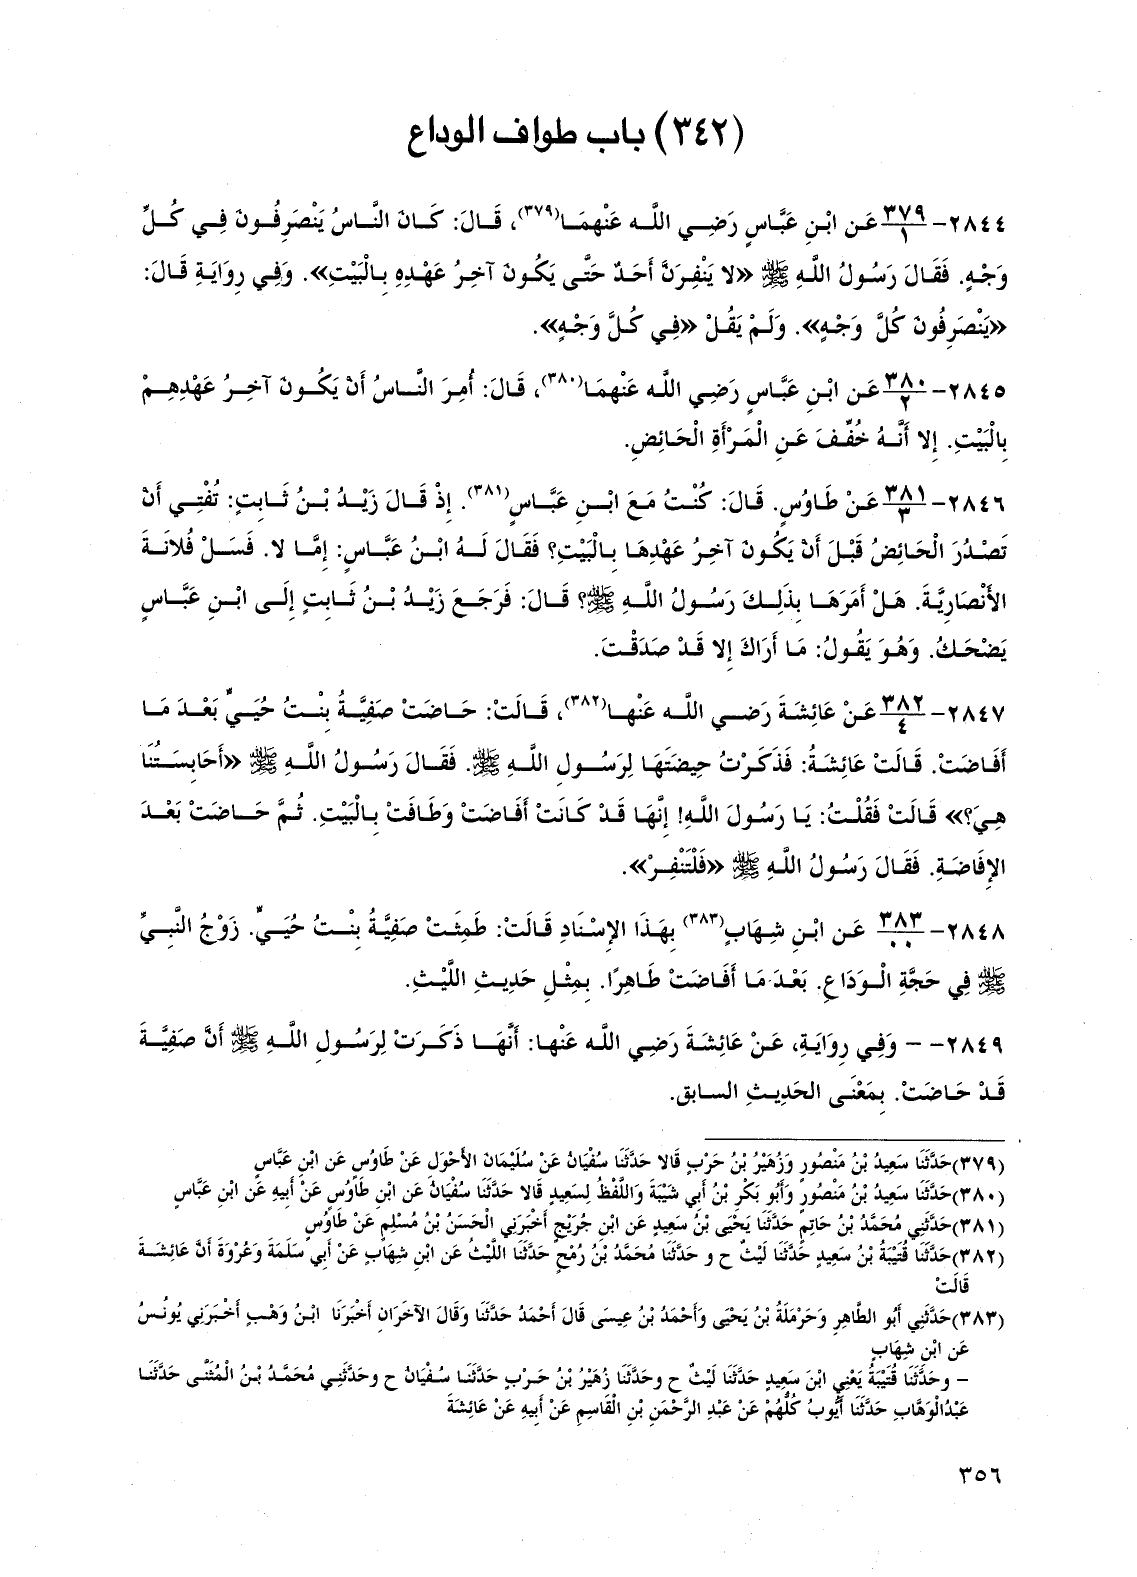 (٣٤٢) باب طواف الوداع
٢٨٤٤- ٣٧٩/١ عَنِ ابْنِ عَبَّاسٍ رَضِي اللَّه عَنْهمَا(٣٧٩)، قَالَ: كَانَ النَّاسُ يَنْصَرِفُونَ فِي كُلِّ
وَجْهٍ. فَقَالَ رَسُولُ اللَّهِ ﷺ «لا يَنْفِرَنَّ أَحَدٌ حَتَّى يَكُونَ آخِرُ عَهْدِهِ بِالْبَيْتِ». وَفِي رِوَايَةٍ قَالَ:
«يَنْصَرِفُونَ كُلَّ وَجْهٍ». وَلَمْ يَقُلْ «فِي كُلِّ وَجْهٍ».
٢٨٤٥- ٣٨٠/٢ عَنِ ابْنِ عَبَّاسٍ رَضِي اللَّه عَنْهمَا(٣٨٠)، قَالَ: أُمِرَ النَّاسُ أَنْ يَكُونَ آخِرُ عَهْدِهِمْ
بِالْبَيْتِ. إِلا أَنَّهُ خُفِّفَ عَنِ الْمَرْأَةِ الْحَائِضِ.
٢٨٤٦- ٣٨١/٣ عَنْ طَاوُسٍ. قَالَ: كُنْتُ مَعَ ابْنِ عَبَّاسٍ(٣٨١). إِذْ قَالَ زَيْدُ بْنُ ثَابِتٍ: تُفْتِي أَنْ
تَصْدُرَ الْحَائِضُ قَبْلَ أَنْ يَكُونَ آخِرُ عَهْدِهَا بِالْبَيْتِ؟ فَقَالَ لَهُ ابْنُ عَبَّاسٍ: إِمَّا لا. فَسَلْ فُلانَةَ
الأَنْصَارِيَّةَ. هَلْ أَمَرَهَا بِذَلِكَ رَسُولُ اللَّهِ ﷺ؟ قَالَ: فَرَجَعَ زَيْدُ بْنُ ثَابِتٍ إِلَى ابْنِ عَبَّاسٍ
يَضْحَكُ. وَهُوَ يَقُولُ: مَا أَرَاكَ إِلا قَدْ صَدَقْتَ.
٢٨٤٧- ٣٨٢/٤ عَنْ عَائِشَةَ رَضِي اللَّه عَنْها(٣٨٢)، قَالَتْ: حَاضَتْ صَفِيَّةُ بِنْتُ حُيَيٍّ بَعْدَ مَا
أَفَاضَتْ. قَالَتْ عَائِشَةُ: فَذَكَرْتُ حِيضَتَهَا لِرَسُولِ اللَّهِ ﷺ. فَقَالَ رَسُولُ اللَّهِ ﷺ «أَحَابِسَتُنَا
هِيَ؟» قَالَتْ فَقُلْتُ: يَا رَسُولَ اللَّهِ! إِنَّهَا قَدْ كَانَتْ أَفَاضَتْ وَطَافَتْ بِالْبَيْتِ. ثُمَّ حَاضَتْ بَعْدَ
الإِفَاضَةِ. فَقَالَ رَسُولُ اللَّهِ ﷺ «فَلْتَنْفِرْ».
٢٨٤٨- ٣٨٣/٠٠ عَنِ ابْنِ شِهَابٍ(٣٨٣) بِهَذَا الإِسْنَادِ قَالَتْ: طَمِثَتْ صَفِيَّةُ بِنْتُ حُيَيٍّ. زَوْجُ النَّبِيِّ
ﷺ فِي حَجَّةِ الْوَدَاعِ. بَعْدَ مَا أَفَاضَتْ طَاهِرًا. بِمِثْلِ حَدِيثِ اللَّيْثِ.
٢٨٤٩- – وَفِي رِوَايَةٍ، عَنْ عَائِشَةَ رَضِي اللَّه عَنْها: أَنَّهَا ذَكَرَتْ لِرَسُولِ اللَّهِ ﷺ أَنَّ صَفِيَّةَ
قَدْ حَاضَتْ. بِمَعْنَى الحَدِيثِ السابق.
(٣٧٩)حَدَّثَنَا سَعِيدُ بْنُ مَنْصُورٍ وَزُهَيْرُ بْنُ حَرْبٍ قَالا حَدَّثَنَا سُفْيَانُ عَنْ سُلَيْمَانَ الأَحْوَلِ عَنْ طَاوُسٍ عَنِ ابْنِ عَبَّاسٍ
(٣٨٠)حَدَّثَنَا سَعِيدُ بْنُ مَنْصُورٍ وَأَبُو بَكْرِ بْنُ أَبِي شَيْبَةَ وَاللَّفْظُ لِسَعِيدٍ قَالا حَدَّثَنَا سُفْيَانُ عَنِ ابْنِ طَاوُسٍ عَنْ أَبِيهِ عَنِ ابْنِ عَبَّاسٍ
(٣٨١)حَدَّثَنِي مُحَمَّدُ بْنُ حَاتِمٍ حَدَّثَنَا يَحْيَى بْنُ سَعِيدٍ عَنِ ابْنِ جُرَيْجٍ أَخْبَرَنِي الْحَسَنُ بْنُ مُسْلِمٍ عَنْ طَاوُسٍ
(٣٨٢)حَدَّثَنَا قُتَيْبَةُ بْنُ سَعِيدٍ حَدَّثَنَا لَيْثٌ ح و حَدَّثَنَا مُحَمَّدُ بْنُ رُمْحٍ حَدَّثَنَا اللَّيْثُ عَنِ ابْنِ شِهَابٍ عَنْ أَبِي سَلَمَةَ وَعُرْوَةَ أَنَّ عَائِشَةَ
قَالَتْ
(٣٨٣)حَدَّثَنِي أَبُو الطَّاهِرِ وَحَرْمَلَةُ بْنُ يَحْيَى وَأَحْمَدُ بْنُ عِيسَى قَالَ أَحْمَدُ حَدَّثَنَا وَقَالَ الآخَرَانِ أَخْبَرَنَا ابْنُ وَهْبٍ أَخْبَرَنِي يُونُسُ
عَنِ ابْنِ شِهَابٍ
– وحَدَّثَنَا قُتَيْبَةُ يَعْنِي ابْنَ سَعِيدٍ حَدَّثَنَا لَيْثٌ ح وحَدَّثَنَا زُهَيْرُ بْنُ حَرْبٍ حَدَّثَنَا سُفْيَانُ ح وحَدَّثَنِي مُحَمَّدُ بْنُ الْمُثَنَّى حَدَّثَنَا
عَبْدُالْوَهَّابِ حَدَّثَنَا أَيُّوبُ كُلُّهُمْ عَنْ عَبْدِ الرَّحْمَنِ بْنِ الْقَاسِمِ عَنْ أَبِيهِ عَنْ عَائِشَةَ
٣٥٦